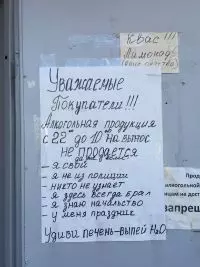 Квас!!!
Лимонад
Уважаемые
Покупатели!!!
Алкогольная продукция
с 22⁰⁰ до 10⁰⁰ на вынос
не продается
даже если
- я свой
- я не из полиции
- никто не узнает
- я здесь всегда брал
- я знаю начальство
- у меня праздник
Удиви печень-выпей H₂O
Прод
алкогольной
запрещ